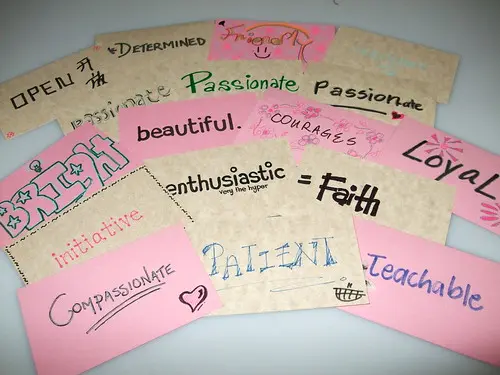 DETERMINED
Friendly
OPEN 开放
Passionate
Passionate
Passionate
beautiful.
COURAGES
LOYAL
BRIGHT
enthusiastic
very the hyper
= Faith
initiative
PATIENT
COMPASSIONATE
Teachable